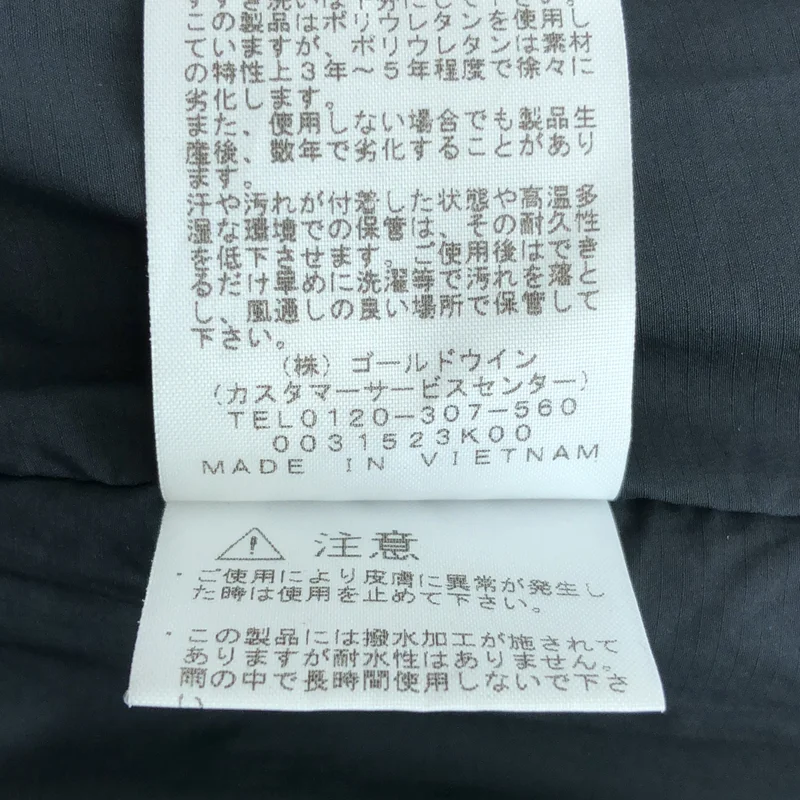 この製品はポリウレタンを使用し
ていますが、ポリウレタンは素材
の特性上3年～5年程度で徐々に
劣化します。
また、使用しない場合でも製品生
産後、数年で劣化することがあり
ます。
汗や汚れが付着した状態や高温多
湿な環境での保管は、その耐久性
を低下させます。ご使用後はでき
るだけ早めに洗濯等で汚れを落と
し、風通しの良い場所で保管して
下さい。
(株)ゴールドウイン
(カスタマーサービスセンター)
TEL0120-307-560
0031523K00
MADE IN VIETNAM
注意
・ご使用により皮膚に異常が発生し
た時は使用を止めて下さい。
・この製品には撥水加工が施されて
ありますが耐水性はありません。
雨の中で長時間使用しないで下さ
い